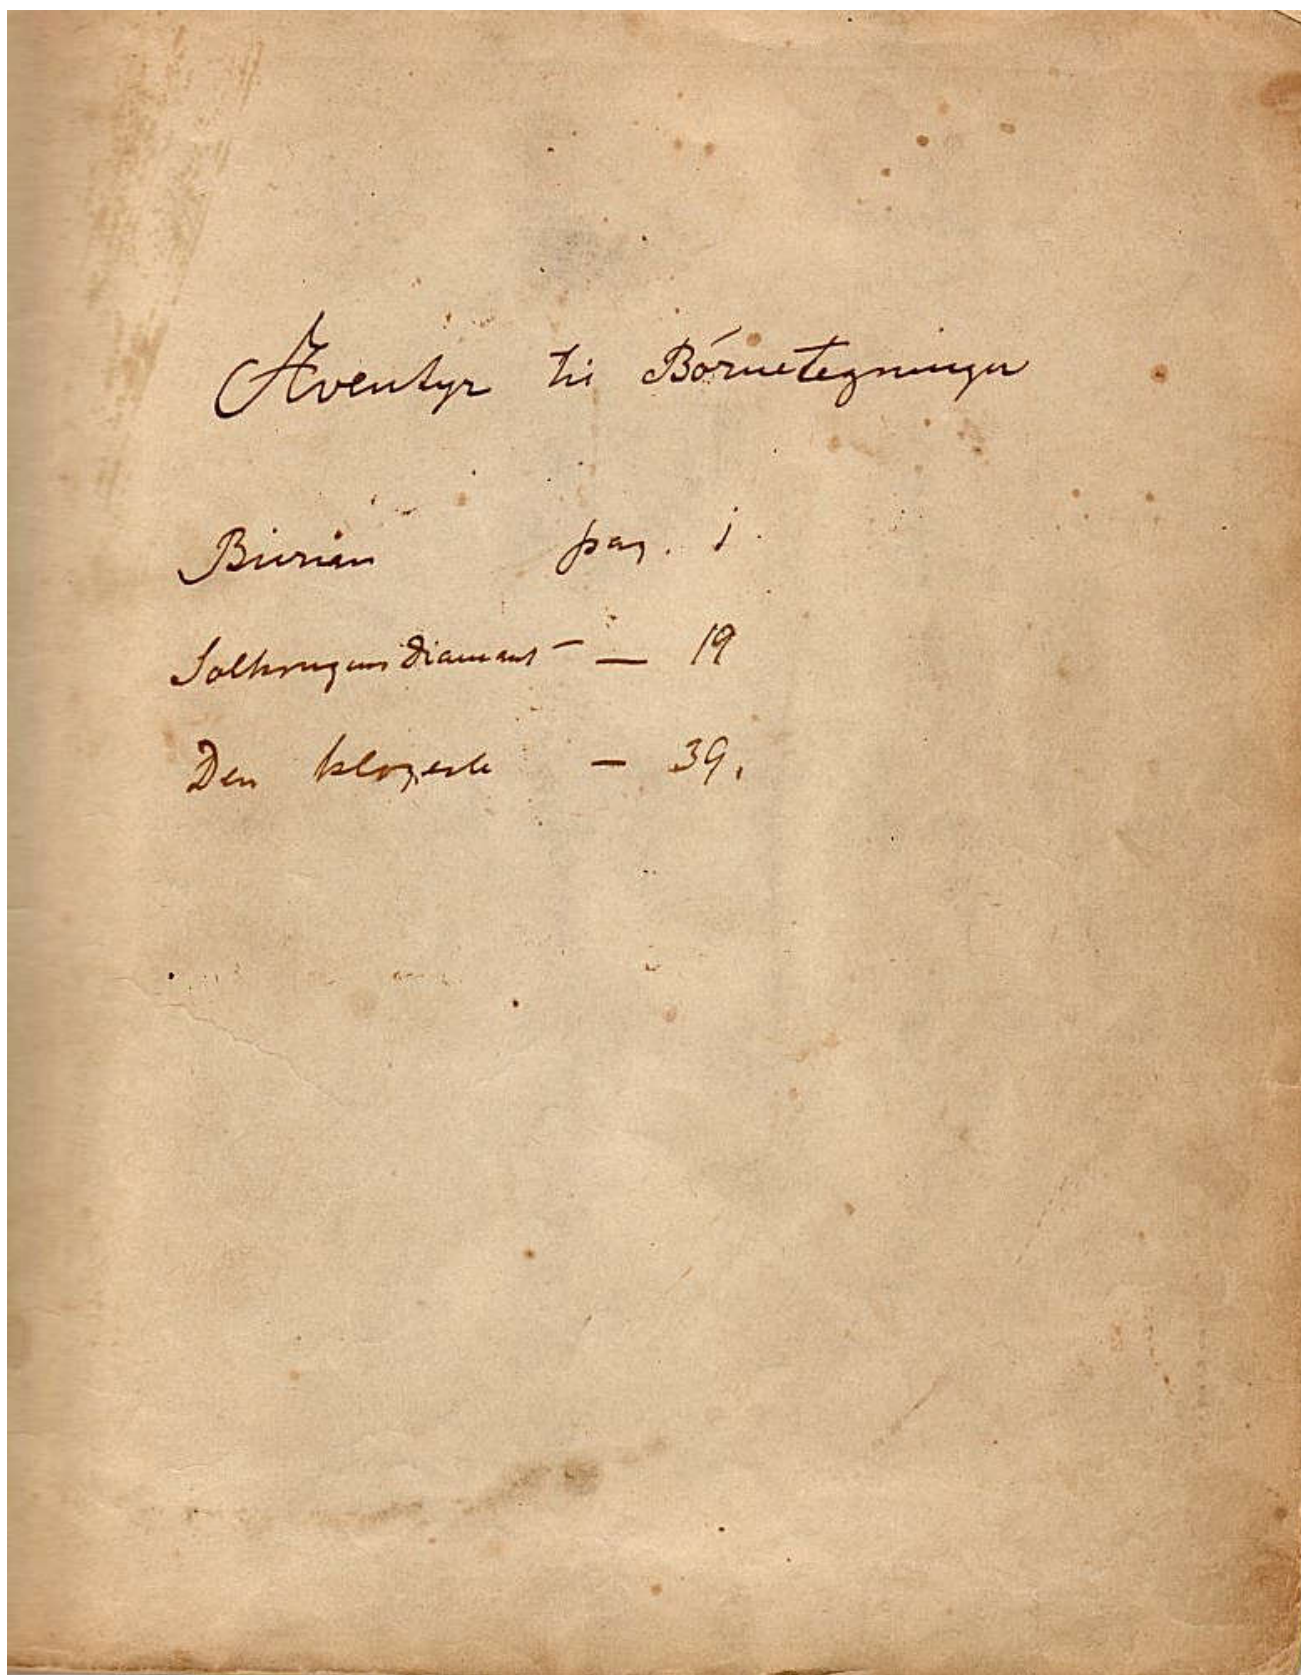 Æventyr til Börnetegninger
Burian pag. 1.
Solkongens diamant — 19
Den klogeste — 39.